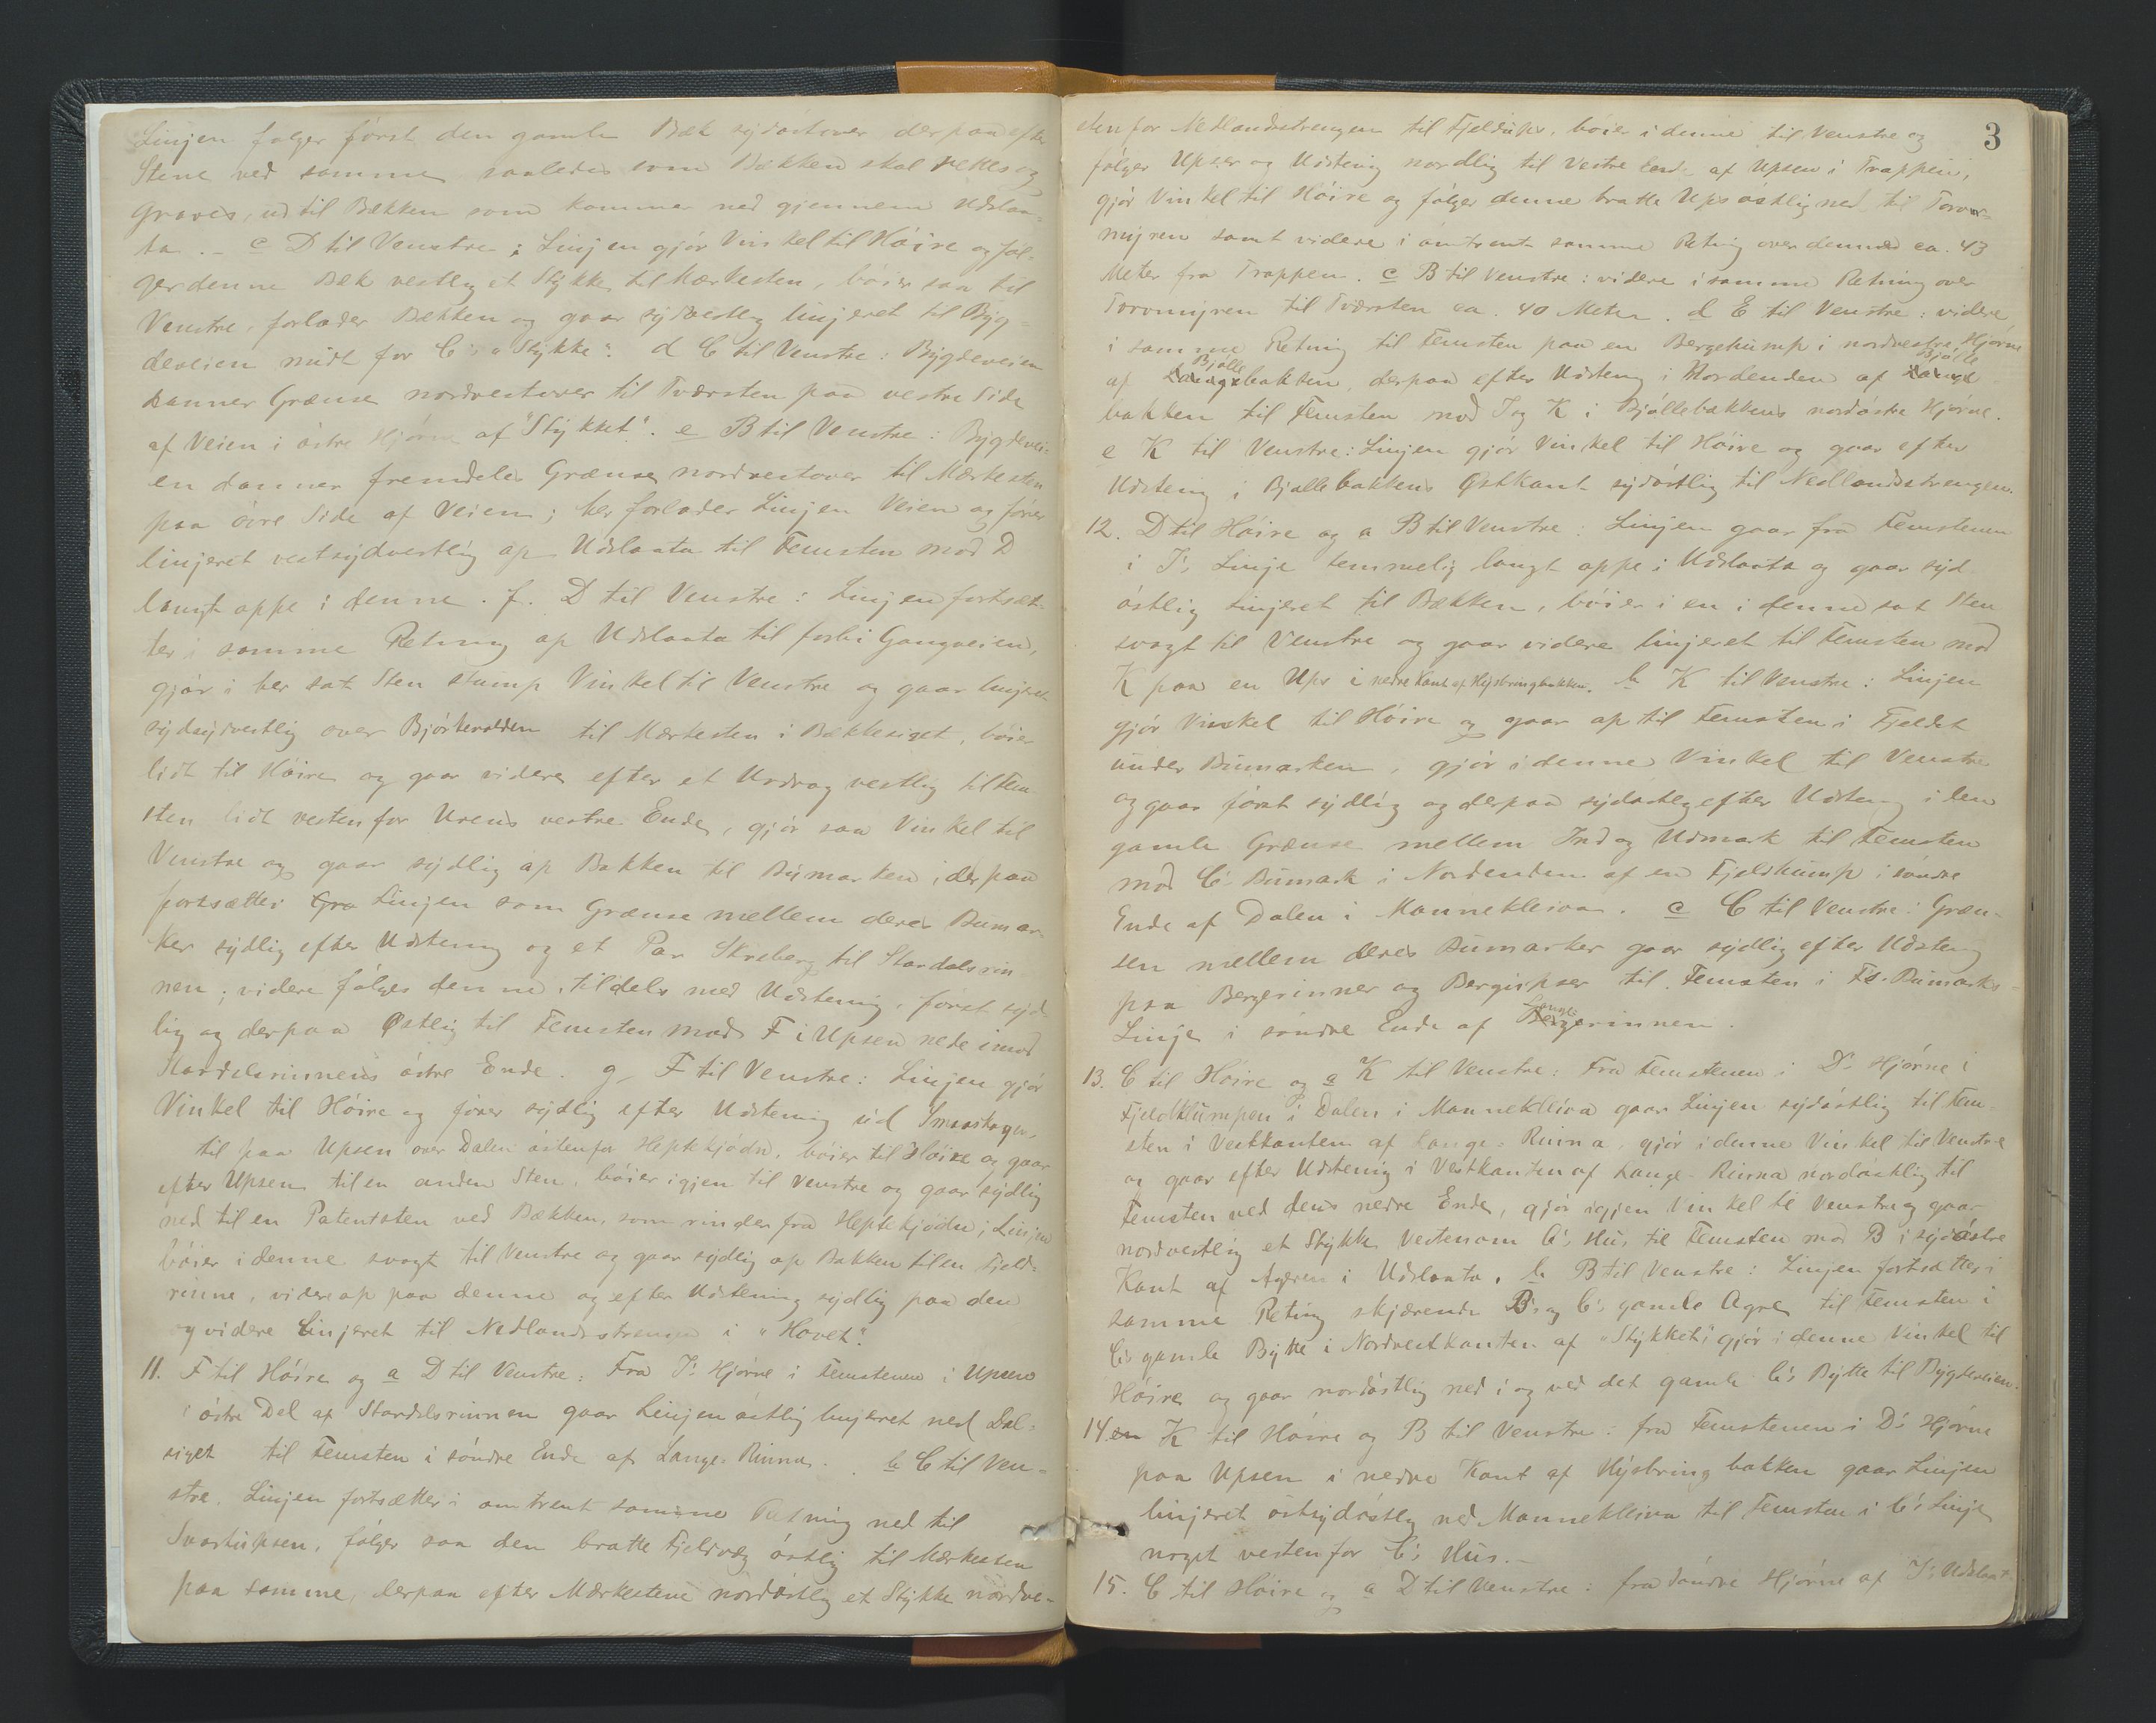 Linjen følger først den gamle Bæk sydøstover derpaa efter
Stene ved samme saaledes som Bækken skal rettes og
Graves, ud til Bækken som kommer ned gjennem Udslaa-
ta. - c D til Venstre: Linjen gjør Vinkel til Høire og føl-
ger denne Bæk vestlig et Stykke til Mærkesten, bøier saa til
Venstre, forlader Bækken og gaar sydvestlig linjeret til Byg-
deveien midt for C's "Stykke". d C til Venstre: Bygdeveien
danner Grænse nordvestover til Tværsten paa vestre Side
af Veien i østre Hjørne af "Stykket". e B til Venstre: Bygdevei-
en danner fremdeles Grænse nordvestover til Mærkesten
paa øvre Side af Veien; her forlader Linjen Veien og fører
linjeret vestsydvestlig op Udslaata til Femsten mod D
langt oppe i denne. f. D til Venstre: Linjen fortsæt-
ter i samme Retning op Udslaata til forbi Gangveien,
gjør i her sat Sten stump Vinkel til Venstre og gaar linjeret
sydsydvestlig over Bjørkerdden til Mærkesten i Bækkesiget, bøier
lidt til Høire og gaar videre efter et Uordrag vestlig til Fem-
sten lidt vestenfor Urens vestre Ende, gjør saa Vinkel til
Venstre og gaar sydlig op Bakken til Bumarken; derpaa
fortsætter Gra Linjen som Grænse mellem deres Bumar-
ker sydlig efter Udstening og et Par Skreberg til Stordalsrin
nen; videre følges denne, tildels med Udstening, først syd-
lig og derpaa Østlig til Femsten mod F i Upsen nede imod
Stordalsrinnens østre Ende. g F til Venstre: Linjen gjør
Vinkel til Høire og fører sydlig efter Udstening ud Smaaskogen,
til paa Upsen over Dalen østenfor Heptekjødn, bøier til Høire og gaar
efter Upsen til en anden Sten, bøier igjen til Venstre og gaar sydlig
ned til en Patentsten ved Bækken, som rinder fra Heptekjødn; Linjen
bøier i denne svagt til Venstre og gaar sydlig op Bakken til en Fjeld-
rinne, videre op paa denne og efter Udstening sydlig paa den
og videre Linjeret til Nedlandsstrengen i "Hovet".
11. F til Høire og a D til Venstre: Fra I's Hjørne i Femstenen i Upsen
i østre Del af Stordalsrinnen gaar Linjen østlig linjeret ned Dal-
siget til Femsten i søndre Ende af Lange-Rinna. b C til Ven-
stre. Linjen fortsætter i omtrent samme Retning ned til
Svartupsen, følger saa den bratte Fjeldvæg østlig til Mærkesten
paa samme, derpaa efter Mærkestene nordøstlig et Stykke nordve-
3
stenfor Nedlandsstrengen til Fjeldups, bøier i denne til Venstre og
følger Upser og Udstening nordlig til Vestre Ende af Upsen i Trappen,
gjør Vinkel til Høire og følger denne bratte Ups østlig ned til Torv-
myren samt videre i omtrent samme Retning over denne ca. 43
Meter fra Trappen. c B til Venstre: videre i samme Retning over
Torvmyren til Tværsten ca. 40 Meter. d E til Venstre: videre
i samme Retning til Femsten paa en Bergekump i nordvestre Hjørne
af Bjølle bakken, derpaa efter Udstening i Nordenden af Bjølle
bakken til Femsten mod I og K i Bjøllebakkens nordøstre Hjørne.
e K til Venstre: Linjen gjør Vinkel til Høire og gaar efter
Udstening i Bjøllebakkens Østkant sydøstlig til Nedlandsstrengen.
12. D til Høire og a B til Venstre: Linjen gaar fra Femstenen
i I's Linje temmelig langt oppe i Udslaata og gaar syd-
østlig Linjeret til Bækken, bøier i en i denne sat Sten
svagt til Venstre og gaar videre linjeret til Femsten mod
K paa en Ups i nedre Kant af Hysbringbakken. b K til Venstre: Linjen
gjør Vinkel til Høire og gaar op til Femsten i Fjeldet
under Bumarken, gjør i denne Vinkel til Venstre
og gaar først sydlig og derpaa sydøstlig efter Udstening i den
gamle Grænse mellem Ind og Udmark til Femsten
mod C's Bumark i Nordenden af en Fjeldkump i søndre
Ende af Dalen i Mannekleiva. c C til Venstre: Græn-
sen mellem deres Bumarker gaar sydlig efter Udstening
paa Bergerinner og Bergupser til Femsten i F's Bumarks-
Linje i søndre Ende af Langerinnen.
13. C til Høire og a K til Venstre: Fra Femstenen i D's Hjørne i
Fjeldklumpen i Dalen i Mannekleiva gaar Linjen sydøstlig til Fem
sten i Vestkanten af Lange-Rinna, gjør i denne Vinkel til Venstre
og gaar efter Udstening i Vestkanten af Lange-Rinna nordøstlig til
Femsten ved dens nedre Ende, gjør igjen Vinkel til Venstre og gaar
nordvestlig et Stykke Vestenom C's Hus til Femsten mod B i sydøstre
Kant af Ageren i Udslaata. b B til Venstre: Linjen fortsætter i
samme Retning skjærende B's og C's gamle Agre til Femsten i
C's gamle Bytte i Nordvestkanten af "Stykket", gjør i denne Vinkel til
Høire og gaar nordøstlig ned i og ved det gamle C's Bytte til Bygdeveien.
14. en K til Høire og B til Venstre: fra Femstenen i D's Hjørne
paa Upsen i nedre Kant af Hysbring bakken gaar Linjen
linjeret østsydøstlig ned Mannekleiva til Femsten i C's Linje
noget vestenfor C's Hus. -
15. C til Høire og a D til Venstre: fra søndre Hjørne af I's Udslaat-